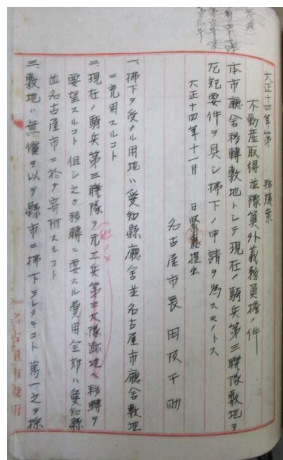 大正十四年第 號議案
不動産取得並豫算外義務負擔ノ件
本市廳舎移轉敷地トシテ現在ノ騎兵第三聯隊敷地ヲ
左記要件ヲ具シ拂下ノ申請ヲ為スモノトス
大正十四年十一月 日提出
名古屋市長 田阪千助
一、拂下ヲ受クル用地ハ愛知縣廳舎並名古屋市廳舎敷地
ニ充用スルコト
二、現在ノ騎兵第三聯隊ヲ元工兵第三大隊跡地ヘ移轉ヲ
要望スルコト 但シ之カ移轉ニ要スル費用全部ハ愛知縣
並名古屋市ニ於テ寄附スルコト
三、敷地ハ無償ヲ以テ縣市ニ拂下ヲレタキコト 萬一之ヲ採